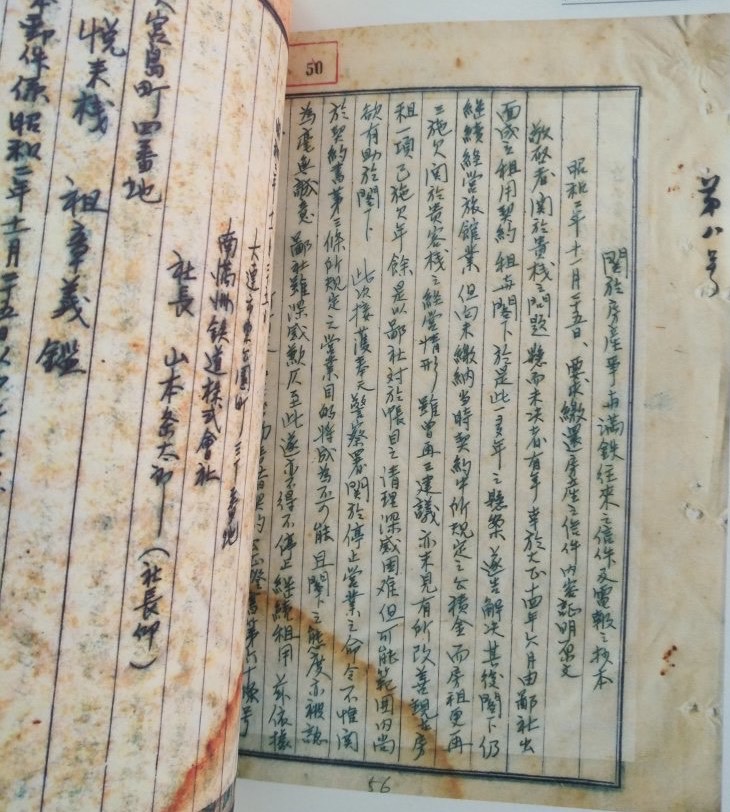 第八号
50
関於房産事与満鉄往来之信件及電報之抄本
昭和二年十一月二十五日、要求繳還房産之信件内容証明原文
敬啟者関於貴栈之問題懸而未决者有年幸於大正十四年六月由鄙社出
面成立租用契約租与閣下於是此一多年之懸案遂告解决其後閣下仍
継続経営旅館業但尚未繳納当時契約中所規定之公積金而房租更再
三施欠関於貴客栈之経営情形雖曾再三建議亦未見有所改善現在房
租一項已施欠年餘是以鄙社対於帳目之清理深感困难但可能範囲内尚
欲有助於閣下此次接獲奉天警察署関於停止営業之命令不惟関
於契約書第三條所規定之営業目的将成為不可能且閣下之態度亦被認
為毫無誠意鄙社雖深感歉仄至此遂亦不得不停止継続租用茲依據
契約公証證書第六十 號
大連市東公園町 番地
南満洲鉄道株式會社
社長 山本条太郎（社長仰）
宮島町四番地
悦来栈 祖章義鑑
郵件係昭和二年十一月二十五日以
56